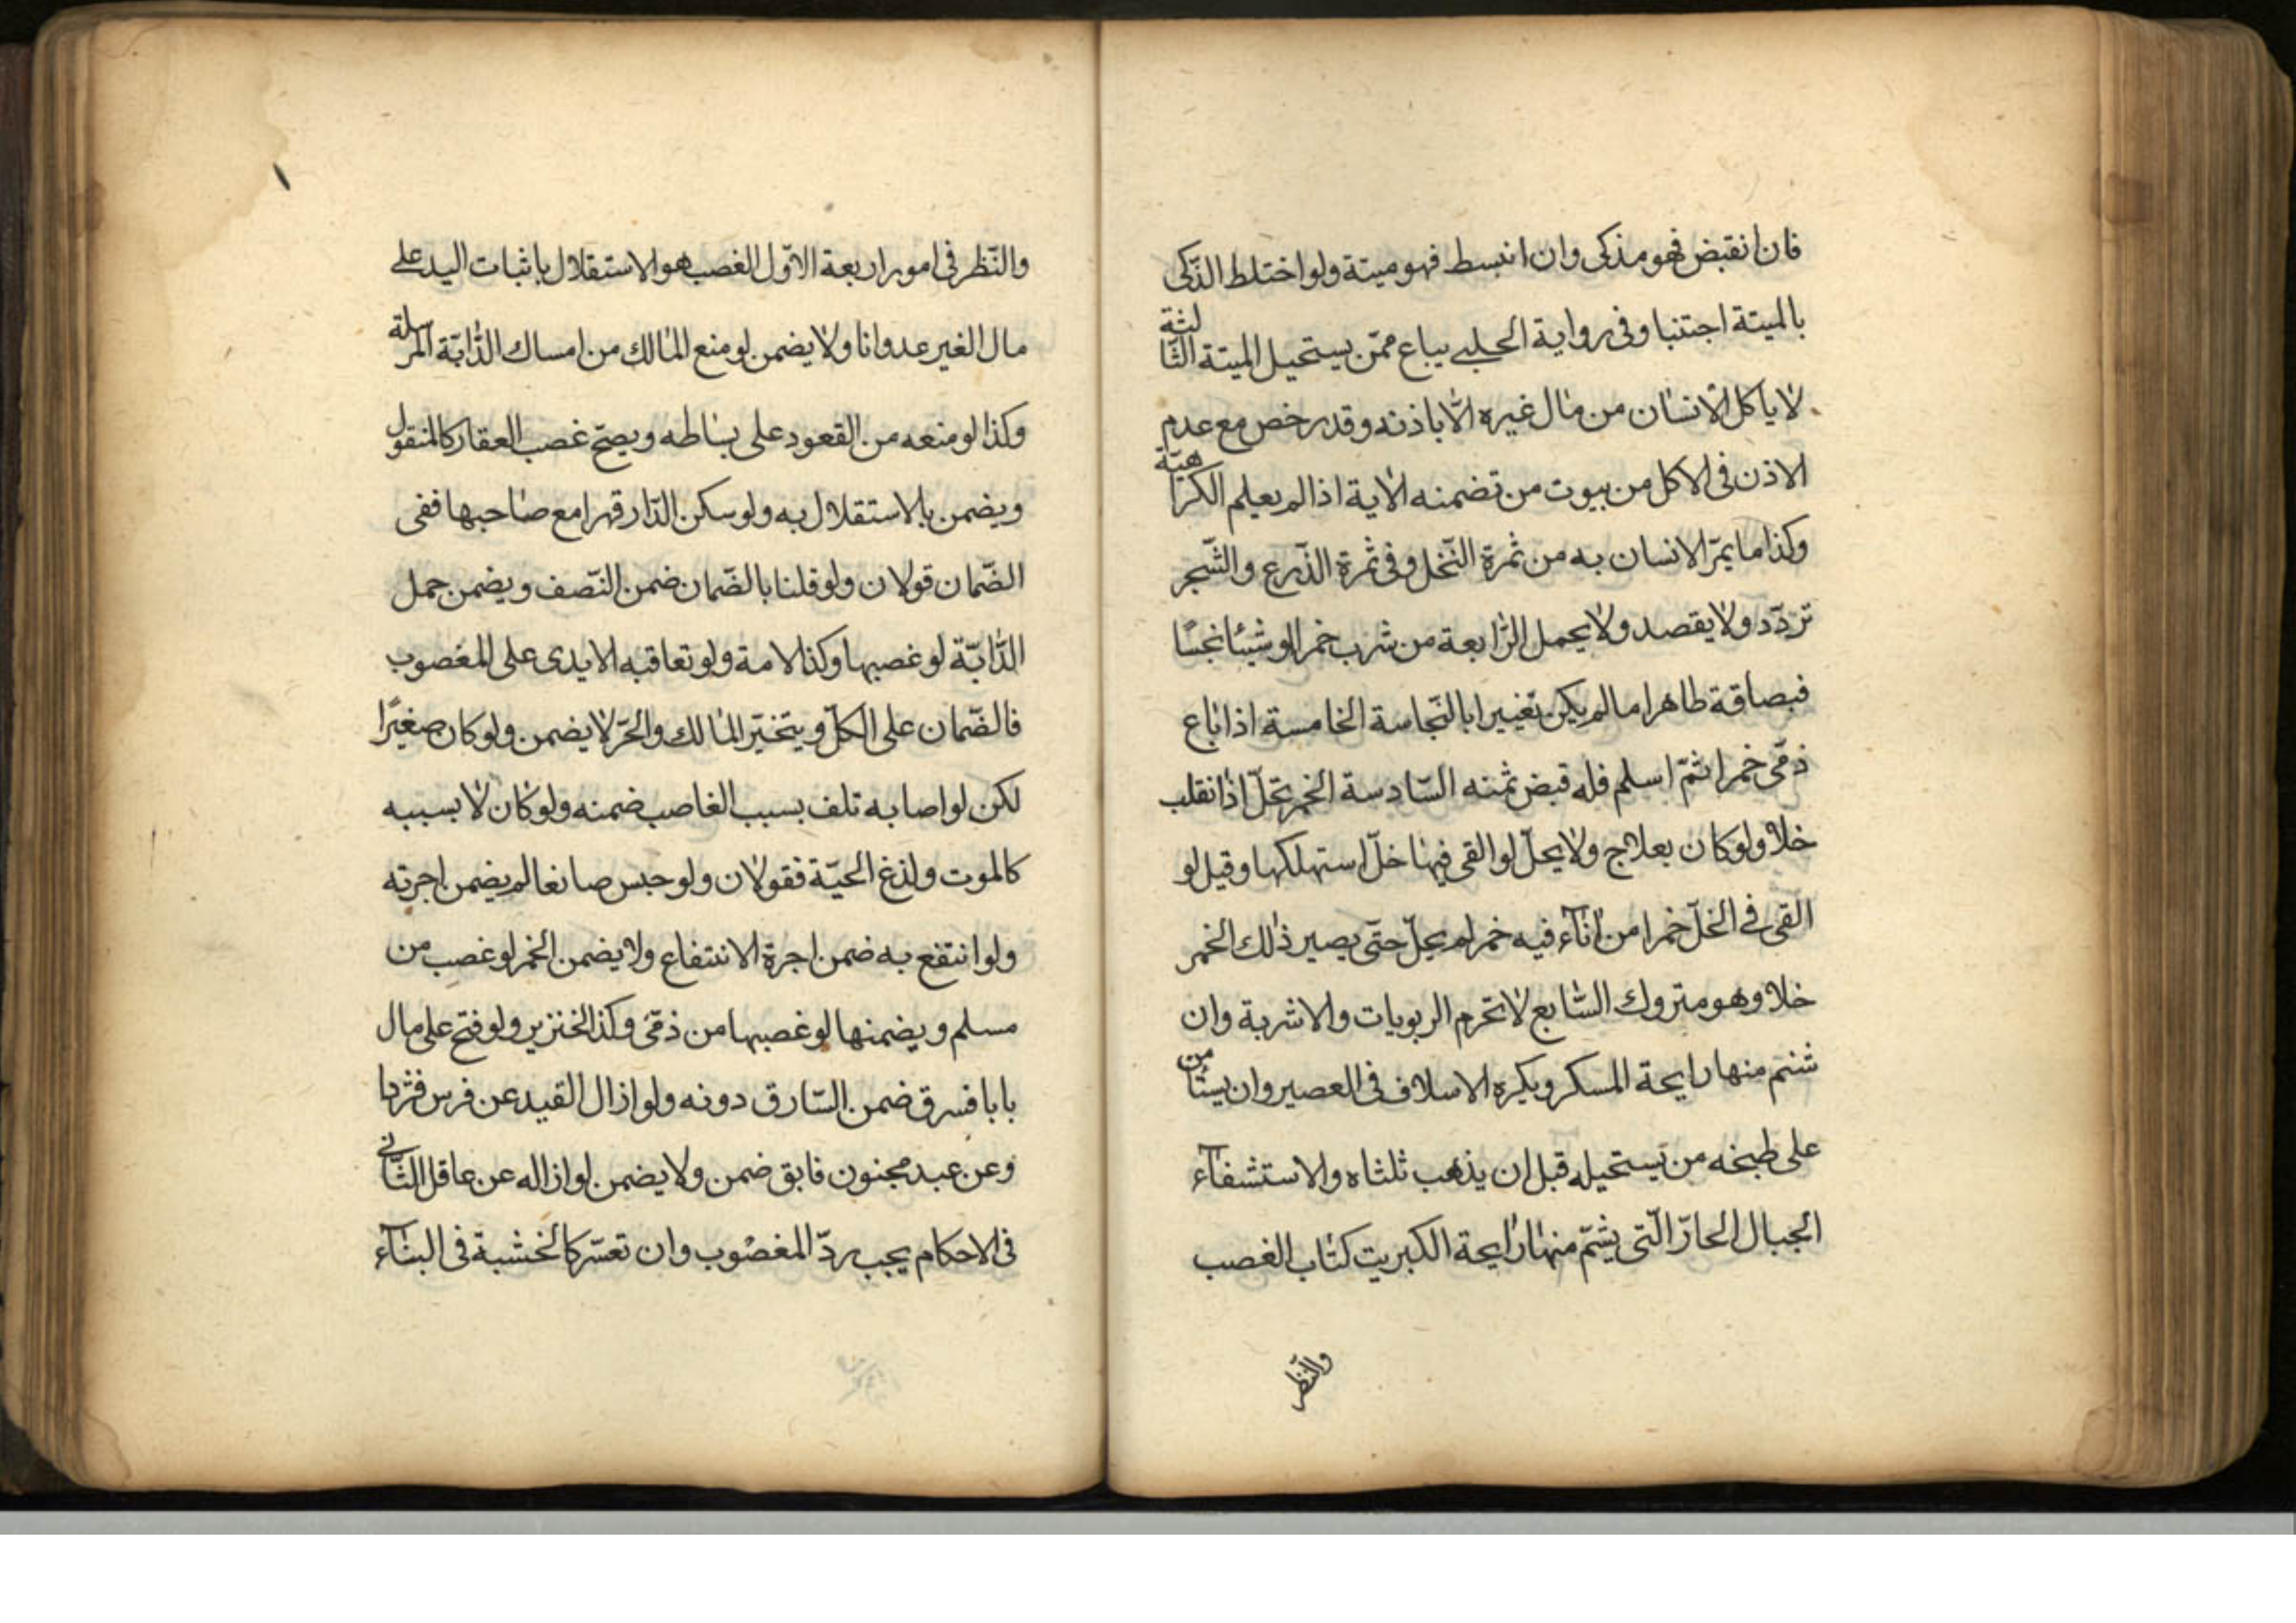 فان انقبض فهو مذكى وان انبسط فهو ميتة ولو اختلط الذّكى
بالميتة اجتنبا وفى رواية الحلبى يباع ممّن يستحيل الميتة الثّالثة
لا ياكل الانسان من مال غيره الّا باذنه وقد رخص مع عدم
الاذن فى الاكل من بيوت من تضمنه الاية اذا لم يعلم الكراهيّة
وكذا ما يمرّ الانسان به من ثمرة النّخل وفى ثمرة الزّرع والشّجر
تردّد ولا يقصد ولا يحمل الرّابعة من شرب خمرا او شيئا نجسًا
فبصاقة طاهرا ما لم يكن تغييرا بالنّجاسة الخامسة اذا باع
ذمّى خمرا ثمّ اسلم فله قبض ثمنه السّادسة الخمر تحلّ اذا انقلب
خلا ولو كان بعلاج ولا يحلّ لو القى فيها خلّ استهلكها وقيل لو
القى فى الخلّ خمرا من اناء فيه خمر لم يحلّ حتّى يصير ذلك الخمر
خلا وهو متروك السّابع لا تحرم الربوبات والاشربة وان
شتم منها رايحة المسكر ويكره الاسلاف فى العصير وان يستامن
على طبخه من يستحيله قبل ان يذهب ثلثاه والاستشفاء
الجبال الحارّ الّتى يشتمّ منها رايحة الكبريت كتاب الغصب
والنّظر
والنّظر فى امور اربعة الاوّل الغصب هو الاستقلال باثبات اليد على
مال الغير عدوانا ولا يضمن لو منع المالك من امساك الدّابّة المرسلة
وكذا لو منعه من القعود على بساطه ويصحّ غصب العقار كالمنقول
ويضمن بالاستقلال به ولو سكن الدّار قهرا مع صاحبها ففى
الضّمان قولان ولو قلنا بالضّمان ضمن النّصف ويضمن حمل
الدّابّة لو غصبها وكذا الامة ولو تعاقبه الايدى على المغصوب
فالضّمان على الكلّ ويتخيّر المالك والحرّ لا يضمن ولو كان صغيرًا
لكن لو اصابه تلف بسبب الغاصب ضمنه ولو كان لا بسببه
كالموت ولذغ الحيّة فقولان ولو حبس صانعا لم يضمن اجرته
ولو انتفع به ضمن اجرة الانتفاع ولا يضمن الخمر لو غصب من
مسلم ويضمنها لو غصبها من ذمّى وكذا الخنزير ولو فتح على مال
بابا فسرق ضمن السّارق دونه ولو ازال القيد عن فرس فشردا
وعن عبد مجنون فابق ضمن ولا يضمن لو ازاله عن عاقل الثّانى
فى الاحكام يجب ردّ المغصوب وان تعسّر كالخشبة فى البناء